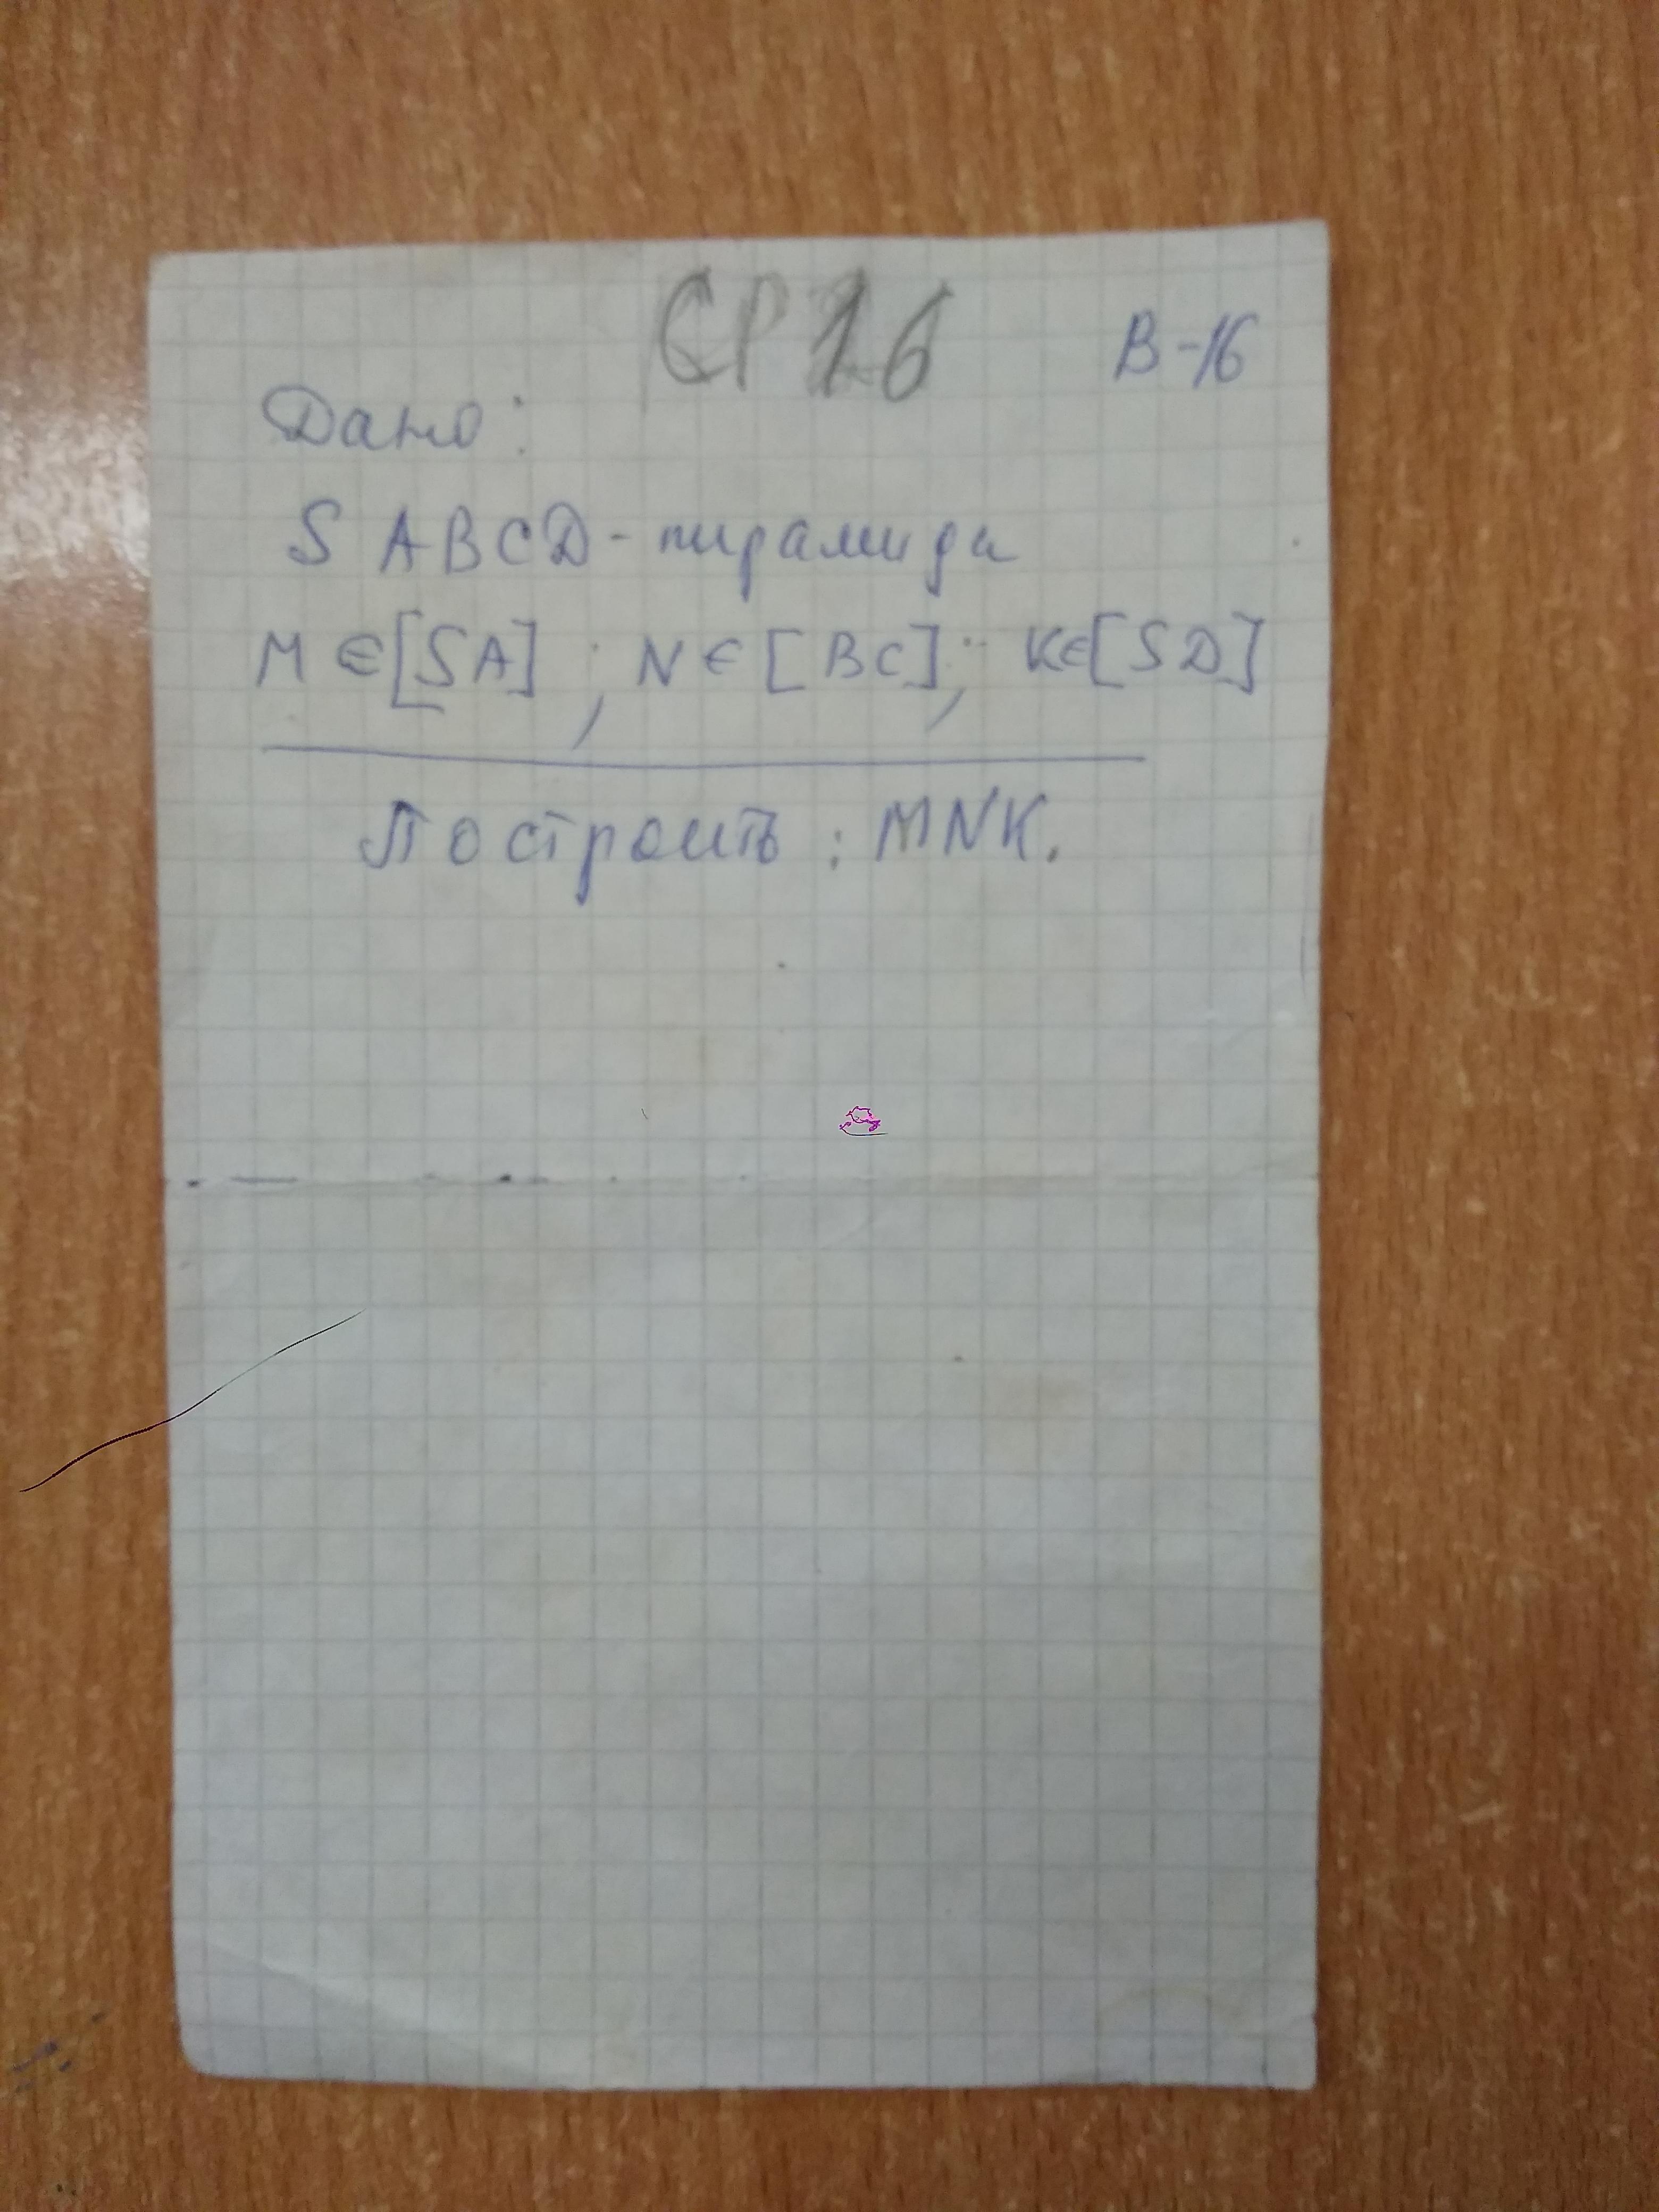 СР 16
В-16
Дано:
S ABCD - пирамида
M ∈ [SA] ; N ∈ [BC] ; K ∈ [SD]
Построить : MNK.